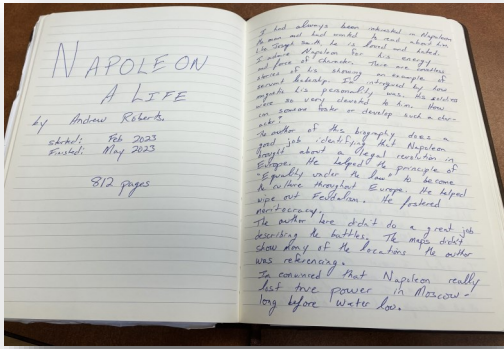 NAPOLEON
A LIFE
by Andrew Roberts
started: Feb 2023
Finished: May 2023
812 pages
I had always been interested in Napoleon
the man and had wanted to read about him.
Like Joseph Smith he is loved and hated.
I admire Napoleon for his energy
and force of character. There are countless
stories of his showing an example of
servant leadership. I'm intrigued by how
magnetic his personality was. His soldiers
were so very devoted to him. How
can someone foster or develop such a
The author of this biography does a
good job identifying that Napoleon
brought about a legal revolution in
Europe. He helped the principle of
"Equality under the law" to become
the culture throughout Europe. He helped
wipe out Feudalism. He fostered
meritocracy.
The author here didn't do a great job
describing the battles. The maps didn't
show many of the locations the author
was referencing.
I'm convinced that Napoleon really
lost true power in Moscow -
long before Water loo.